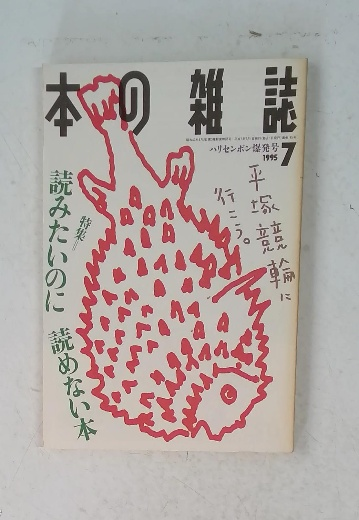 本の雑誌
ハリセンボン爆発号
1995 7
平塚競輪に
行こう。
特集=
読みたいのに 読めない本